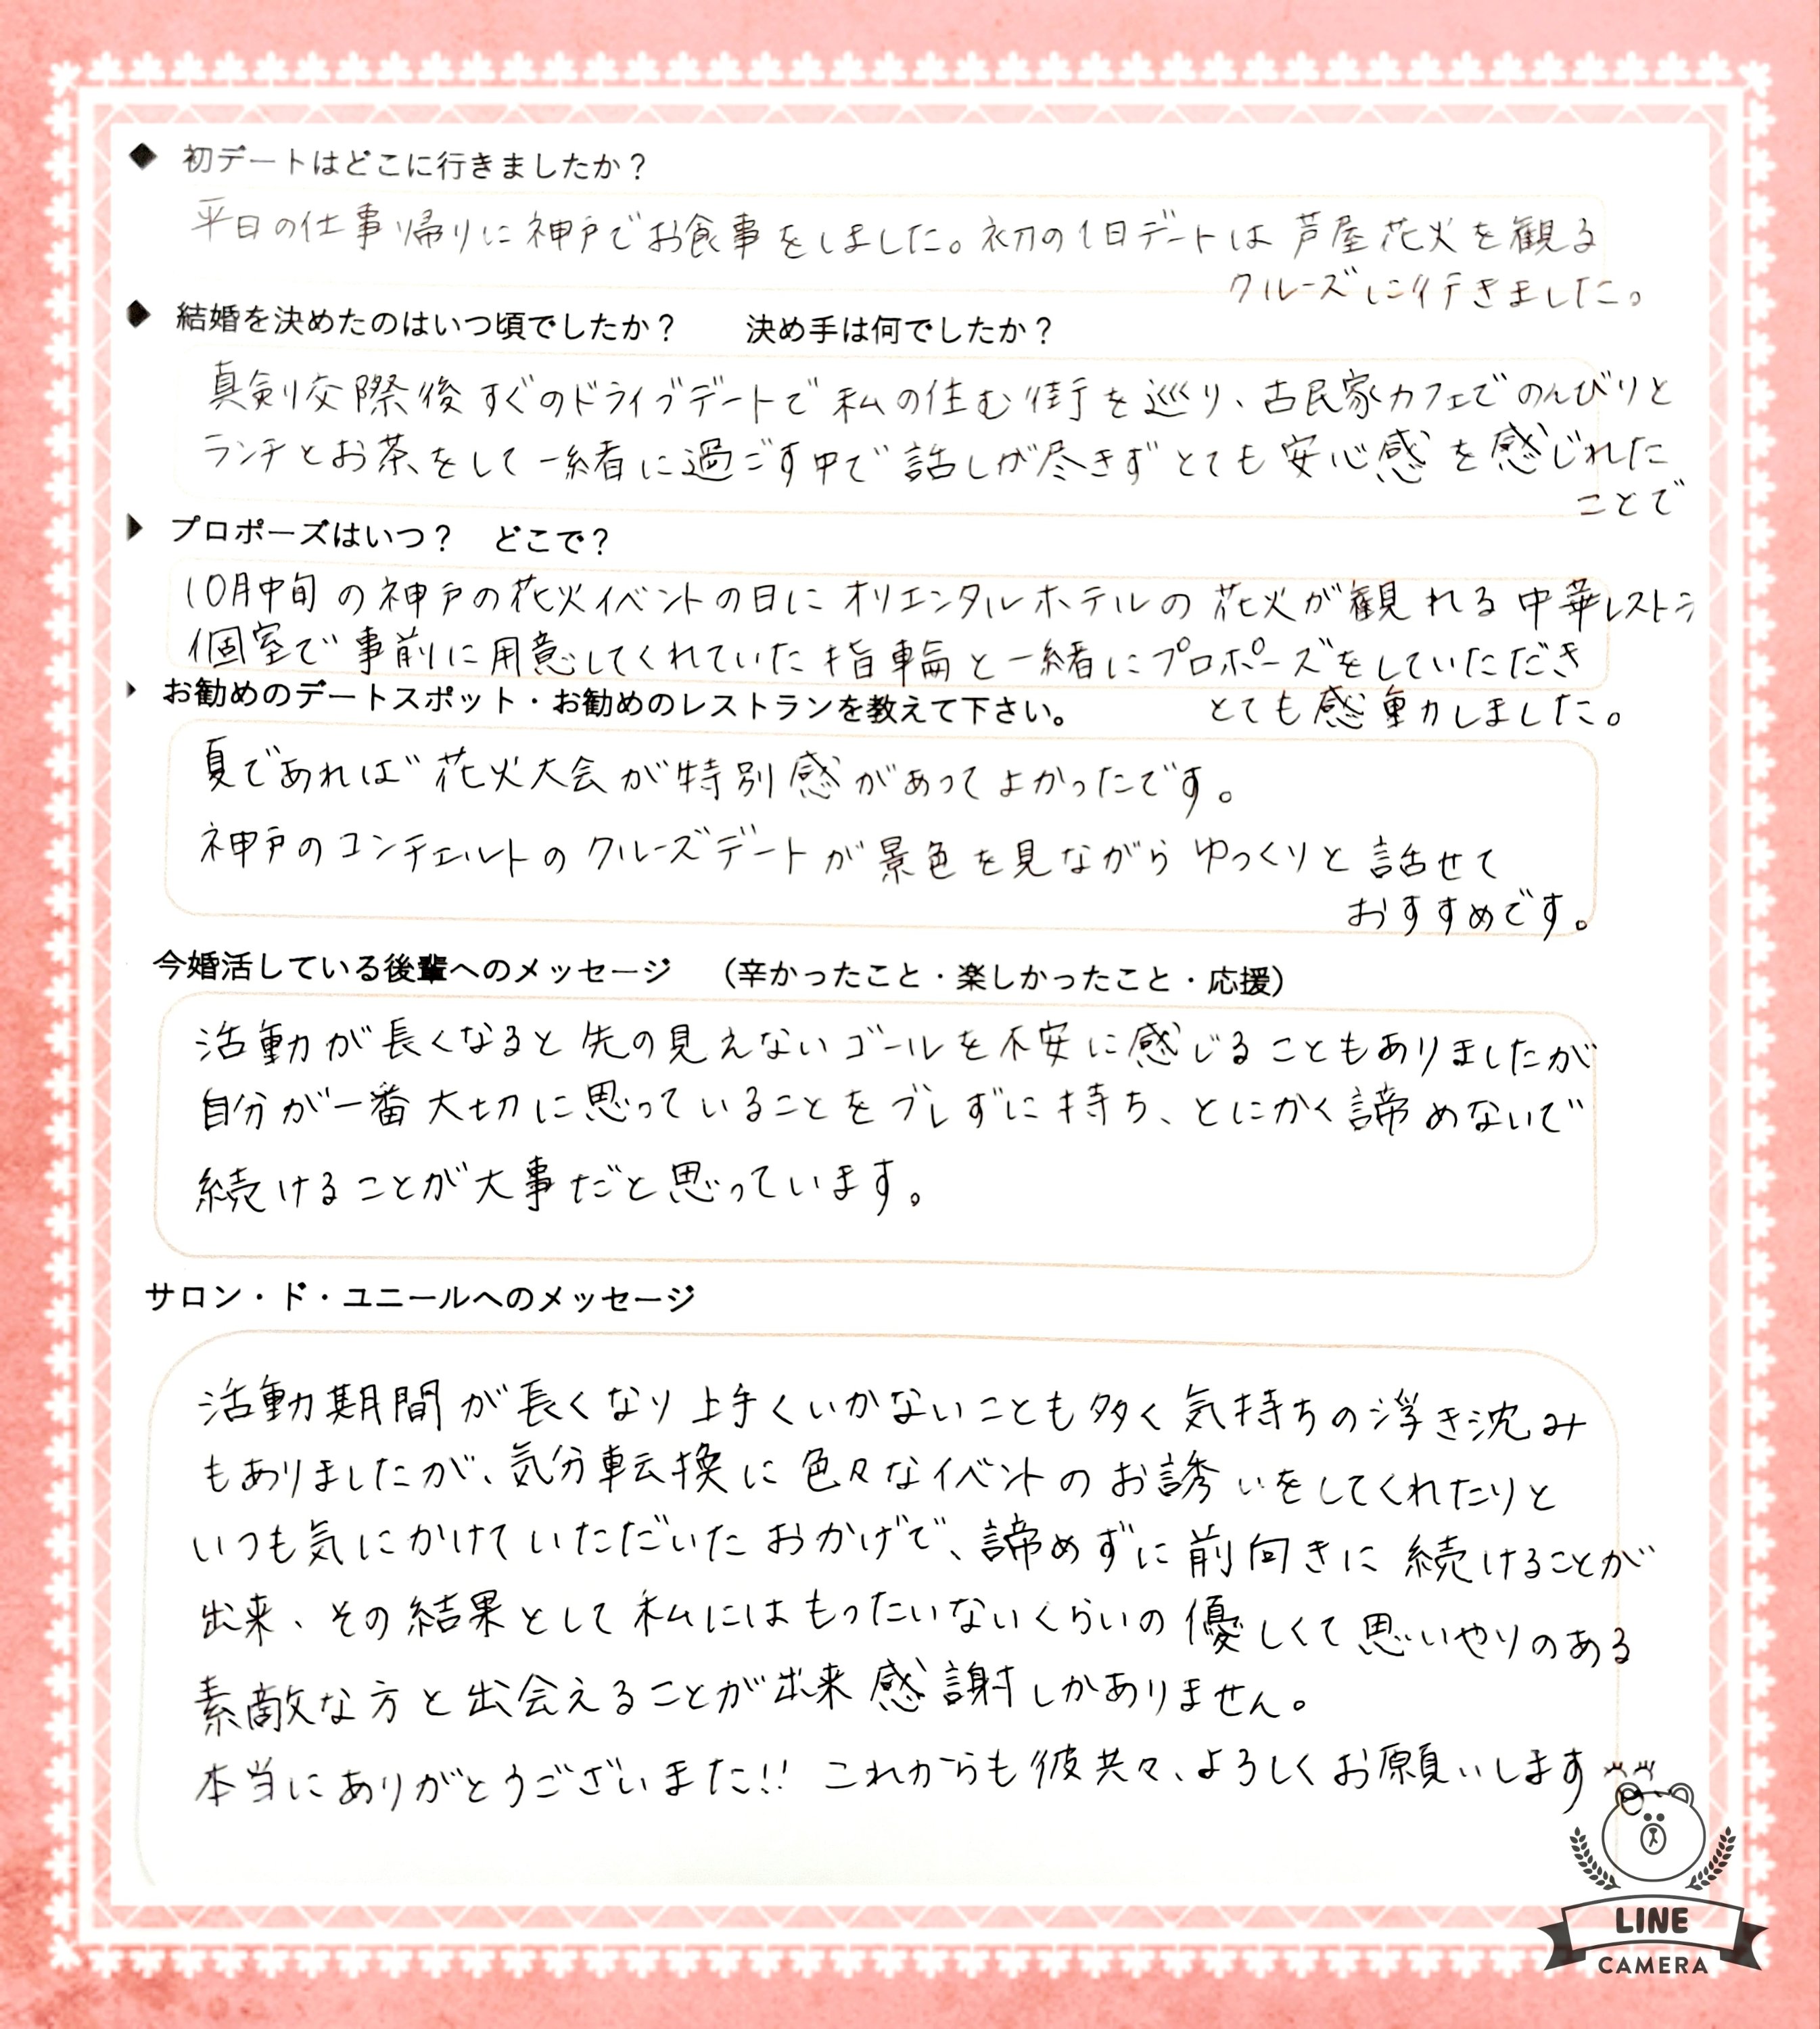 ◆ 初デートはどこに行きましたか？
平日の仕事帰りに神戸でお食事をしました。初の1日デートは芦屋花火を観る
クルーズに行きました。
◆ 結婚を決めたのはいつ頃でしたか？ 決め手は何でしたか？
真剣交際後すぐのドライブデートで私の住む街を巡り、古民家カフェでのんびりと
ランチとお茶をして一緒に過ごす中で話しが尽きずとても安心感を感じれた
ことで
プロポーズはいつ？ どこで？
10月中旬の神戸の花火イベントの日にオリエンタルホテルの花火が観れる中華レストラ
個室で事前に用意してくれていた指輪と一緒にプロポーズをしていただき
とても感動しました。
お勧めのデートスポット・お勧めのレストランを教えて下さい。
夏であれば花火大会が特別感があってよかったです。
神戸のコンチェルトのクルーズデートが景色を見ながらゆっくりと話せて
おすすめです。
今婚活している後輩へのメッセージ （辛かったこと・楽しかったこと・応援）
活動が長くなると先の見えないゴールを不安に感じることもありましたが
自分が一番大切に思っていることをブレずに持ち、とにかく諦めないで
続けることが大事だと思っています。
サロン・ド・ユニールへのメッセージ
活動期間が長くなり上手くいかないことも多く気持ちの浮き沈み
もありましたが、気分転換に色々なイベントのお誘いをしてくれたりと
いつも気にかけていただいたおかげで、諦めずに前向きに続けることが
出来、その結果として私にはもったいないくらいの優しくて思いやりのある
素敵な方と出会えることが出来感謝しかありません。
本当にありがとうございまた!! これからも彼共々、よろしくお願いします
LINE
CAMERA